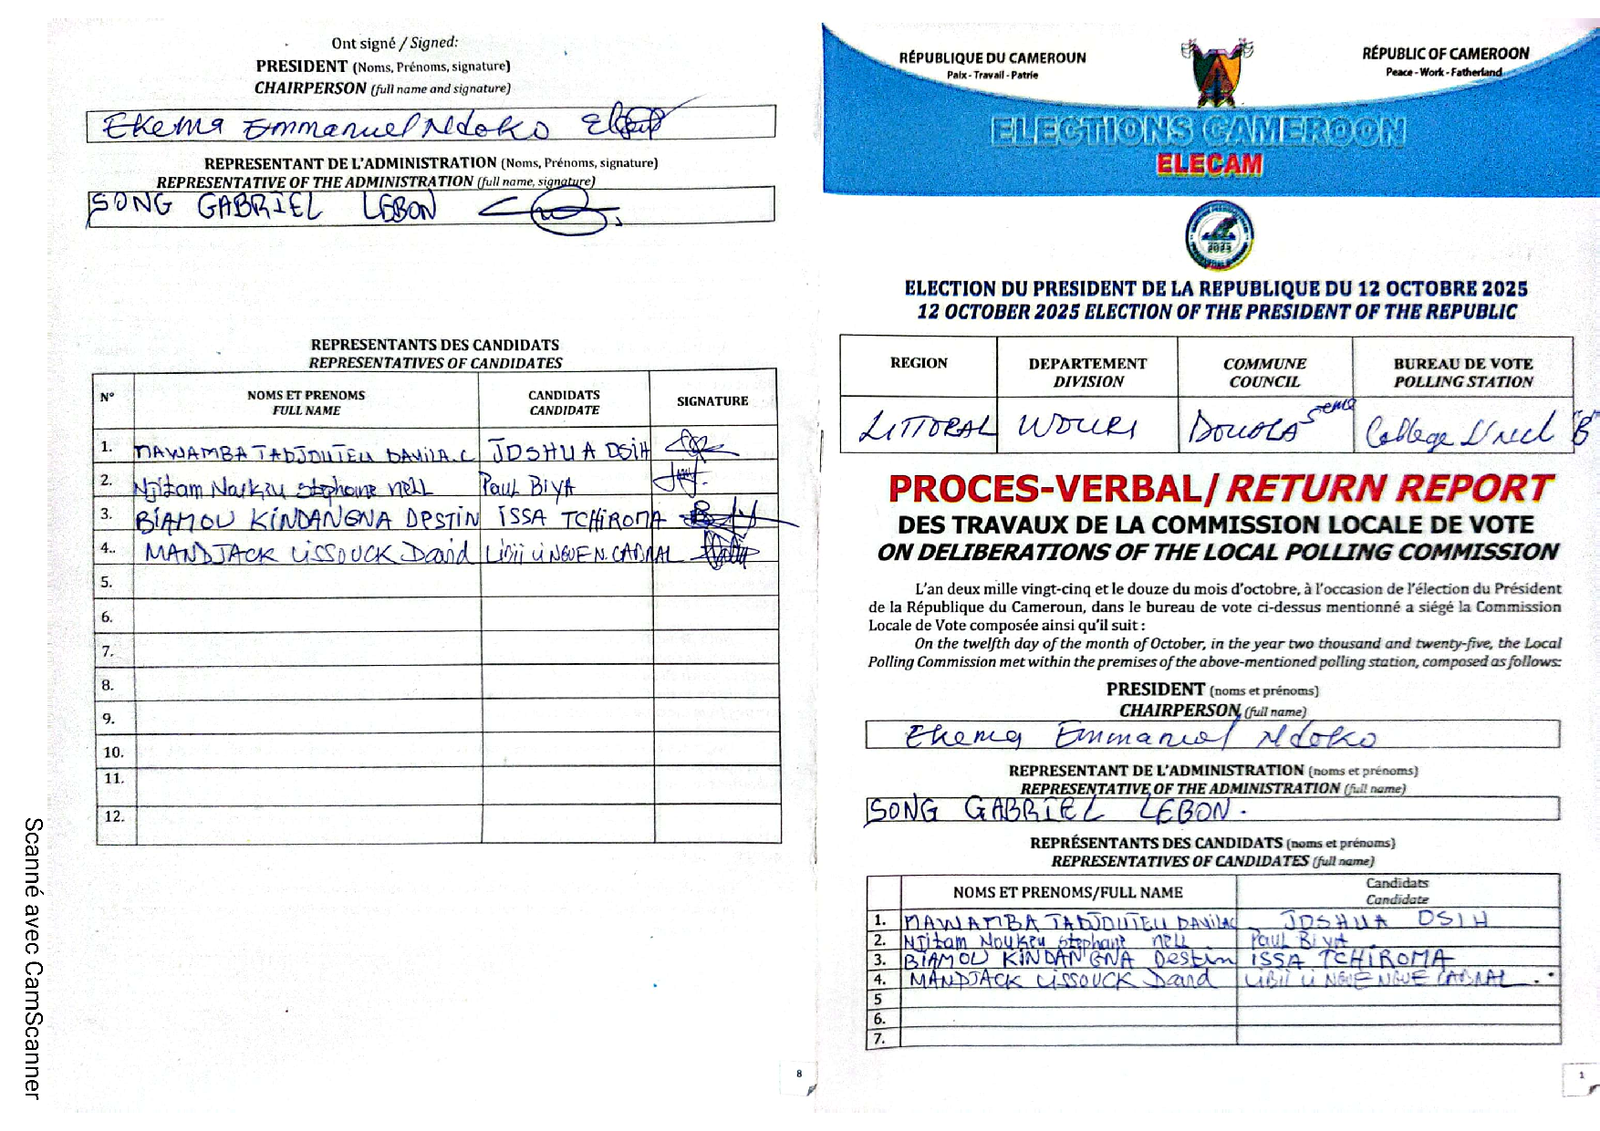 Ont signé / Signed:
PRESIDENT (Noms, Prénoms, signature)
CHAIRPERSON (full name and signature)
Ekema Emmanuel Ndoko
REPRESENTANT DE L'ADMINISTRATION (Noms, Prénoms, signature)
REPRESENTATIVE OF THE ADMINISTRATION (full name, signature)
SONG GABRIEL LEBON
REPRESENTANTS DES CANDIDATS
REPRESENTATIVES OF CANDIDATES
N° NOMS ET PRENOMS FULL NAME CANDIDATS CANDIDATE SIGNATURE
1. MAWAMBA TADJOUTEU DAVILA.C JOSHUA OSIH
2. Njitam Stephane NELL Paul BiYA
3. BIAMOU KINDANGNA DESTIN ISSA TCHIROMA
4.. MANDJACK LISSOUCK David LIBII LI NGUE N. CABRAL
5.
6.
7.
8.
9.
10.
11.
12.
8
Scanné avec CamScanner
RÉPUBLIQUE DU CAMEROUN
Paix - Travail - Patrie
RÉPUBLIC OF CAMEROON
Peace - Work - Fatherland
ELECTIONS CAMEROON
ELECAM
2025
ELECTION DU PRESIDENT DE LA REPUBLIQUE DU 12 OCTOBRE 2025
12 OCTOBER 2025 ELECTION OF THE PRESIDENT OF THE REPUBLIC
REGION DEPARTEMENT DIVISION COMMUNE COUNCIL BUREAU DE VOTE POLLING STATION
LITTORAL WOURI DOUALA 5eme College "B"
PROCES-VERBAL/ RETURN REPORT
DES TRAVAUX DE LA COMMISSION LOCALE DE VOTE
ON DELIBERATIONS OF THE LOCAL POLLING COMMISSION
L'an deux mille vingt-cinq et le douze du mois d'octobre, à l'occasion de l'élection du Président
de la République du Cameroun, dans le bureau de vote ci-dessus mentionné a siégé la Commission
Locale de Vote composée ainsi qu'il suit :
On the twelfth day of the month of October, in the year two thousand and twenty-five, the Local
Polling Commission met within the premises of the above-mentioned polling station, composed as follows:
PRESIDENT (noms et prénoms)
CHAIRPERSON (full name)
Ekema Emmanuel Ndoko
REPRESENTANT DE L'ADMINISTRATION (noms et prénoms)
REPRESENTATIVE OF THE ADMINISTRATION (full name)
SONG GABRIEL LEBON.
REPRÉSENTANTS DES CANDIDATS (noms et prénoms)
REPRESENTATIVES OF CANDIDATES (full name)
NOMS ET PRENOMS/FULL NAME Candidats Candidate
1. MAWAMBA TADJOUTEU DAVILAC JOSHUA OSIH
2. Njitam Noukeu Stephane NELL Paul BiYA
3. BIAMOU KINDANGNA Destin ISSA TCHIROMA
4. MANDJACK LISSOUCK David LIBII LI NGUE NGUE CABRAL
5
6.
7.
1